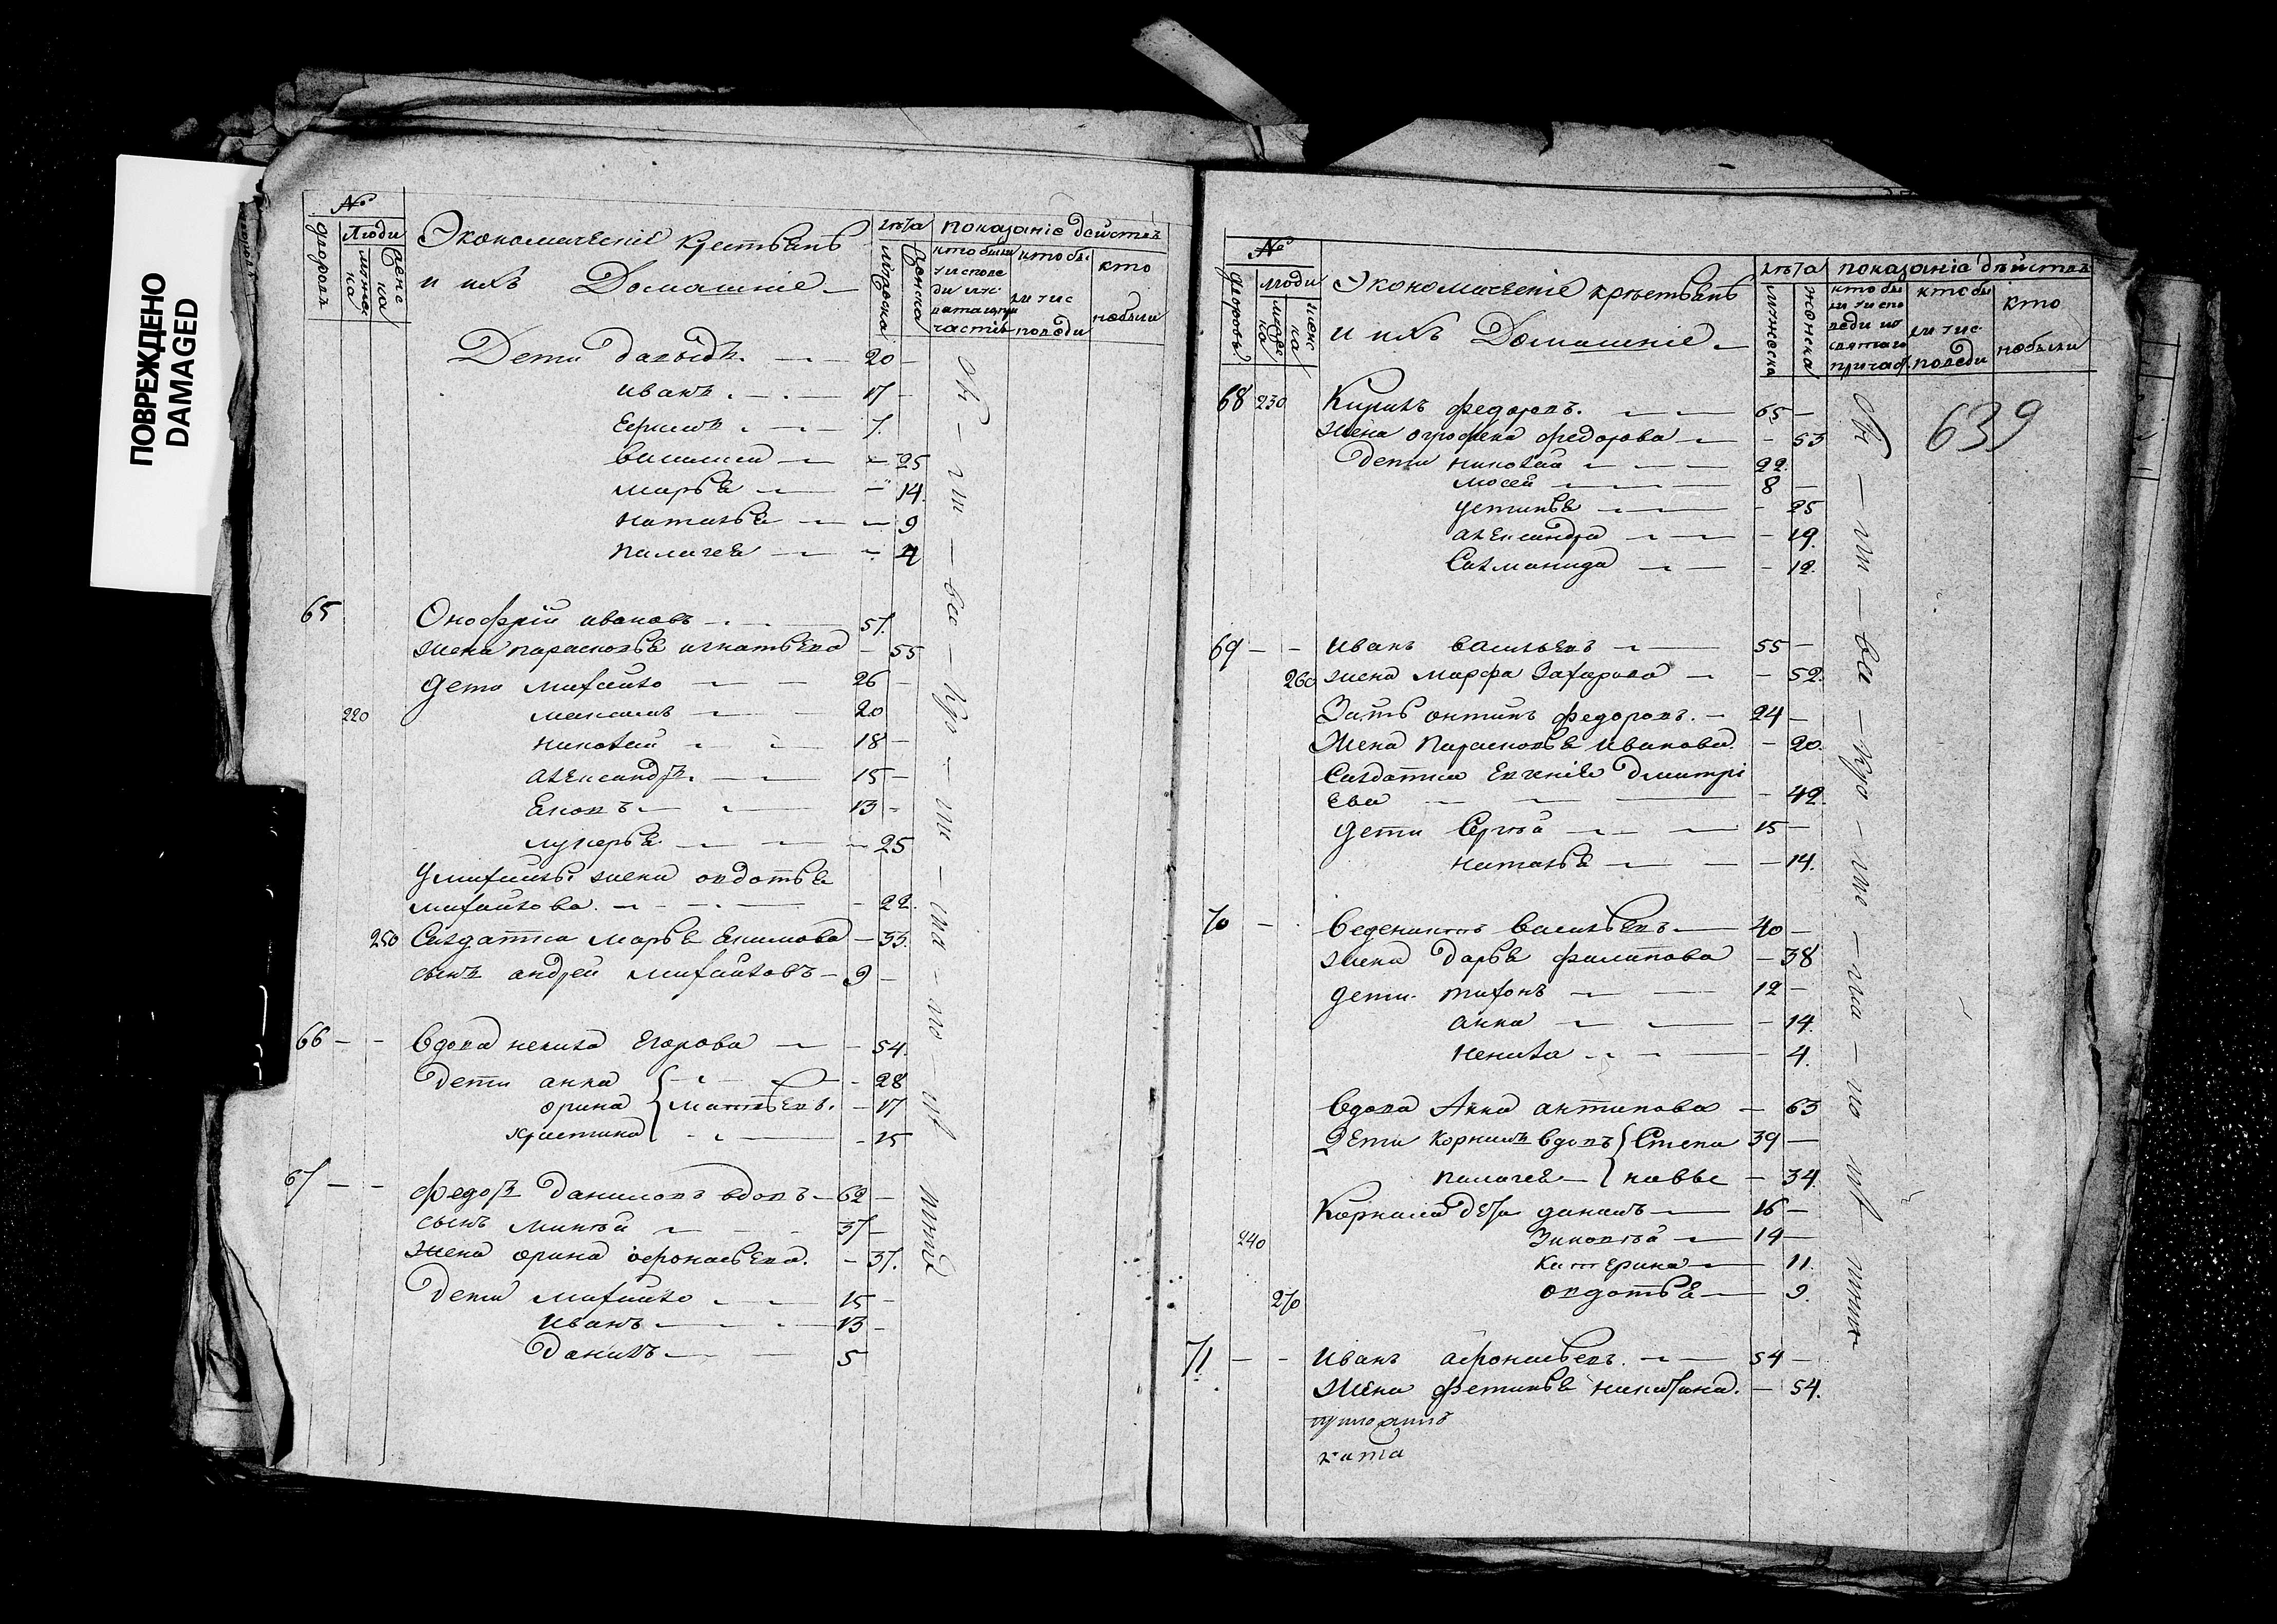 ПОВРЕЖДЕНО
DAMAGED
№
дворовъ
Люди
мужеска
женска
Экономическіе крестьянъ
и ихъ Домашніе
лѣта
мужеска
женска
показаніе действъ
кто
небыли
Дети давыдъ 20
иванъ 17
Ефимъ 7
василиса 25
марья 14
наталья 9
пелагея 4
65 Онофрій ивановъ 57
жена парасковья игнатьева 55
дети михайло 26
220 максимъ 20
николай 18
александръ 15
Яковъ 13
лукерья 25
у михайлы жена овдотья
михайлова 22
250 Салдатка марья акимова 33
сынъ андрей михайловъ 9
66 вдова ненила Егорова 54
дети анна 28
орина матвѣевъ 17
христина 15
67 федоръ даниловъ вдовъ 62
сынъ минѣй 37
жена орина афонасьева 37
Дети михайло 15
иванъ 13
данилъ 5
№
дворовъ
люди
женска
Экономическіе крѣстьянъ
и ихъ Домашніе
лѣта
мужеска
женска
показаніе дѣйствъ
кто
небыли
639
68 230 Кирилъ федоровъ 65
жена огрофена федорова 53
дети николай 22
мосей 8
устинья 25
александра 19
Саломанида 12
69 иванъ васильевъ 55
260 жена марфа Захарова 52
Зять онтипъ федоровъ 24
жена парасковья иванова 20
Салдатка Евгенія дмитрі
ева 42
дети Сергѣй 15
наталья 14
70 веденихтъ васильевъ 40
жена дарья филипова 38
дети тихонъ 12
анна 14
ненила 4
вдова Анна антипова 63
Дети корнилъ вдовъ Степа 39
пелагея новы 34
Корнила дѣти данилъ 16
240 Зиновѣй 14
катерина 11
270 овдотья 9
71 иванъ афонасьевъ 54
жена фетинья никитина 54